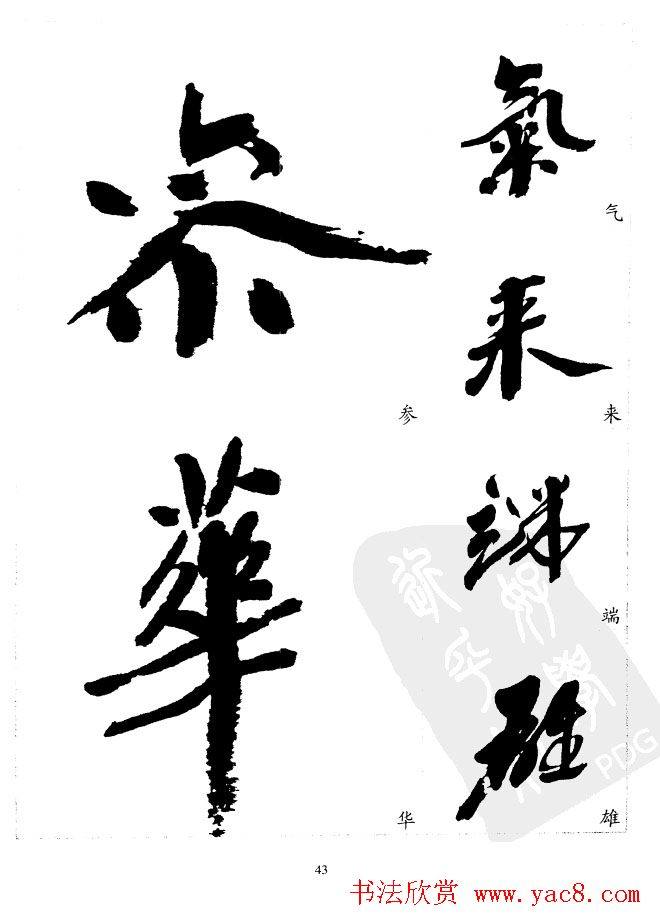 氣
气
来
来
端
端
雄
雄
参
参
華
华
PDG
43
书法欣赏 www.yac8.com